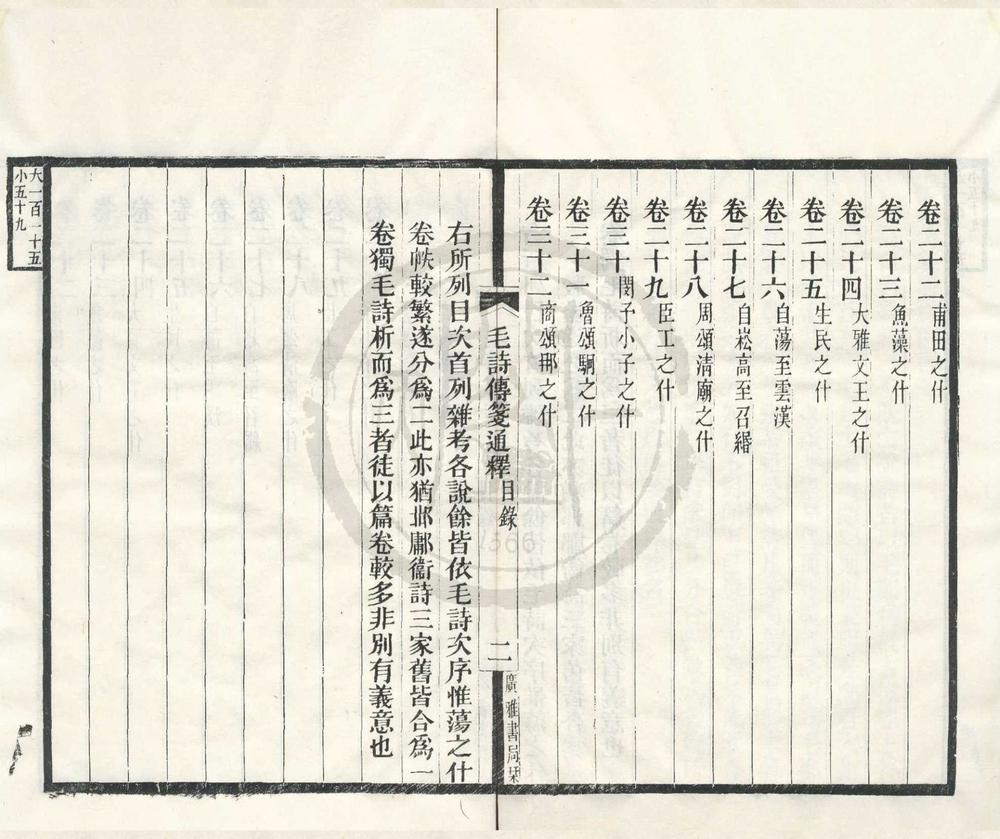 卷二十二 甫田之什
卷二十三 魚藻之什
卷二十四 大雅文王之什
卷二十五 生民之什
卷二十六 自蕩至雲漢
卷二十七 自崧高至召緡
卷二十八 周頌清廟之什
卷二十九 臣工之什
卷三十 閔予小子之什
卷三十一 魯頌駉之什
卷三十二 商頌那之什
毛詩傳箋通釋 目錄 二 廣雅書局栞
右所列目次首列雜考各說餘皆依毛詩次序惟蕩之什
卷帙較繁遂分爲二此亦猶邶鄘衞詩三家舊皆合爲一
卷獨毛詩析而爲三者徒以篇卷較多非別有義意也
大一百一十五
小五十九
1366